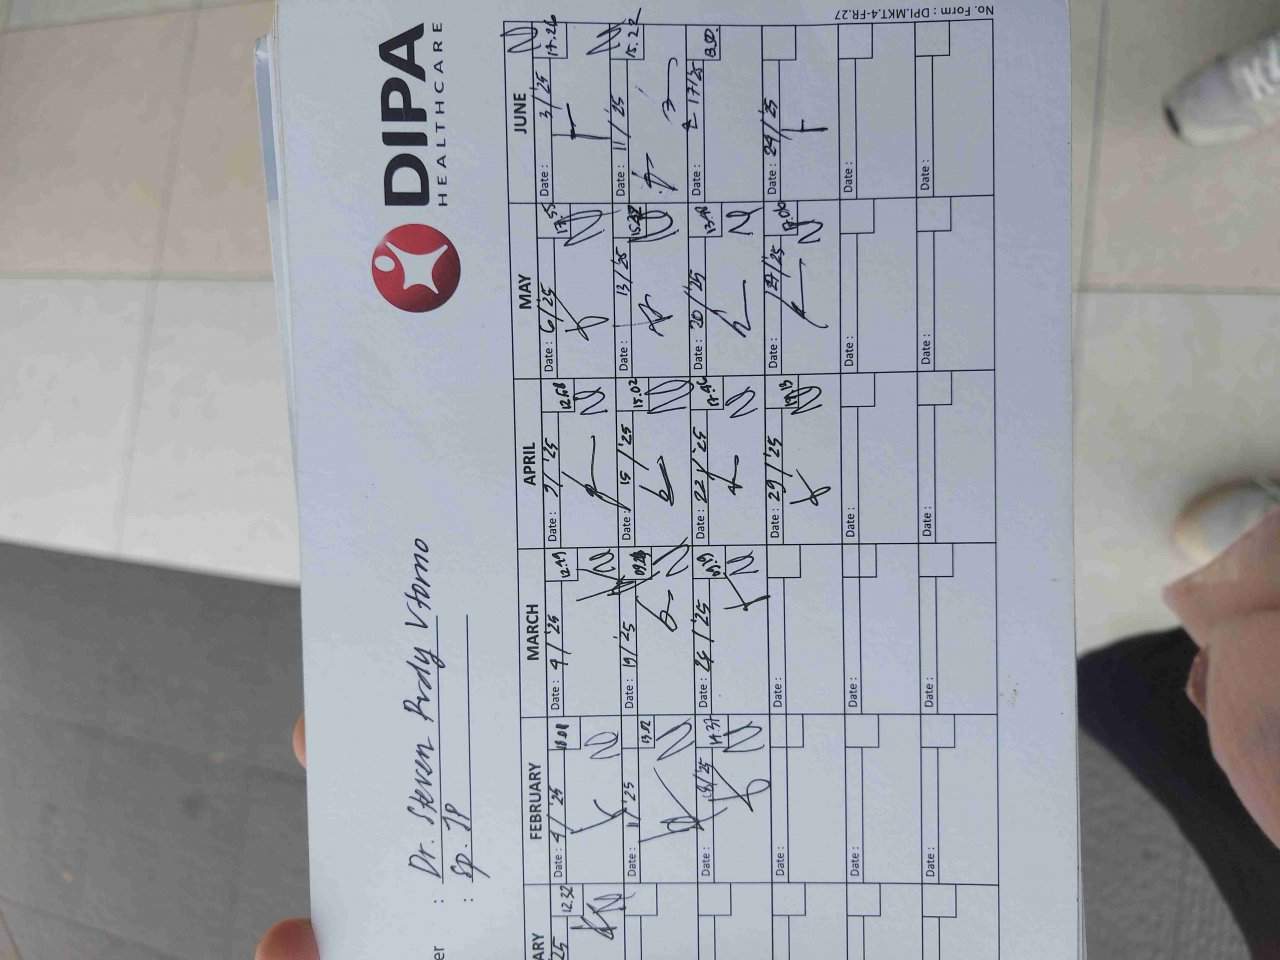 DIPA
HEALTHCARE
er : Dr. Steven Utomo
: Sp. JP
ARY FEBRUARY MARCH APRIL MAY JUNE
25 12.32 Date : 4/'25 Date : 4/'25 12.49 Date : 7/'25 Date : 6/'25 17.55 Date : 3/'25
Date : 11/'25 13.02 Date : 19/'25 Date : 15/'25 15.02 Date : 13/'25 Date : 11/'25 15.22
Date : 18/'25 14.37 Date : Date : 22/'25 Date : 20/'25 Date : 17/'25
Date : Date : Date : 29/'25 Date : 27/'25 17.00 Date : 24/'25
Date : Date : Date : Date : Date :
Date : Date : Date : Date : Date :
No. Form : DPI.MKT.4-FR.27